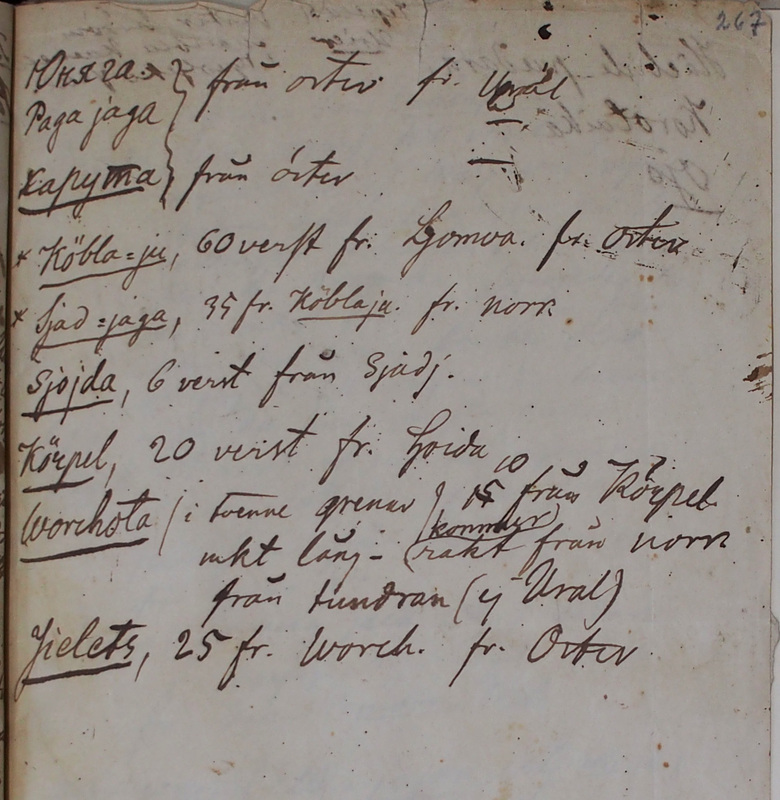 267
Юняга } från öster fr. Ural
Paga jaga
харута } från öster
× Köbla=ju, 60 verst fr. Ljomva. fr. öster
× Sjad=jaga, 35 fr. Köblaju. fr. norr
Sjojda, 6 verst från Sjadj.
Körpel, 20 verst fr. Sjoida
10
Worchota (i tvenne grenar) 15 från Körpel
(kommer)
mkt lång - rakt från norr
från tundran (ej Ural)
Jielets, 25 fr. Worch. fr. Öster